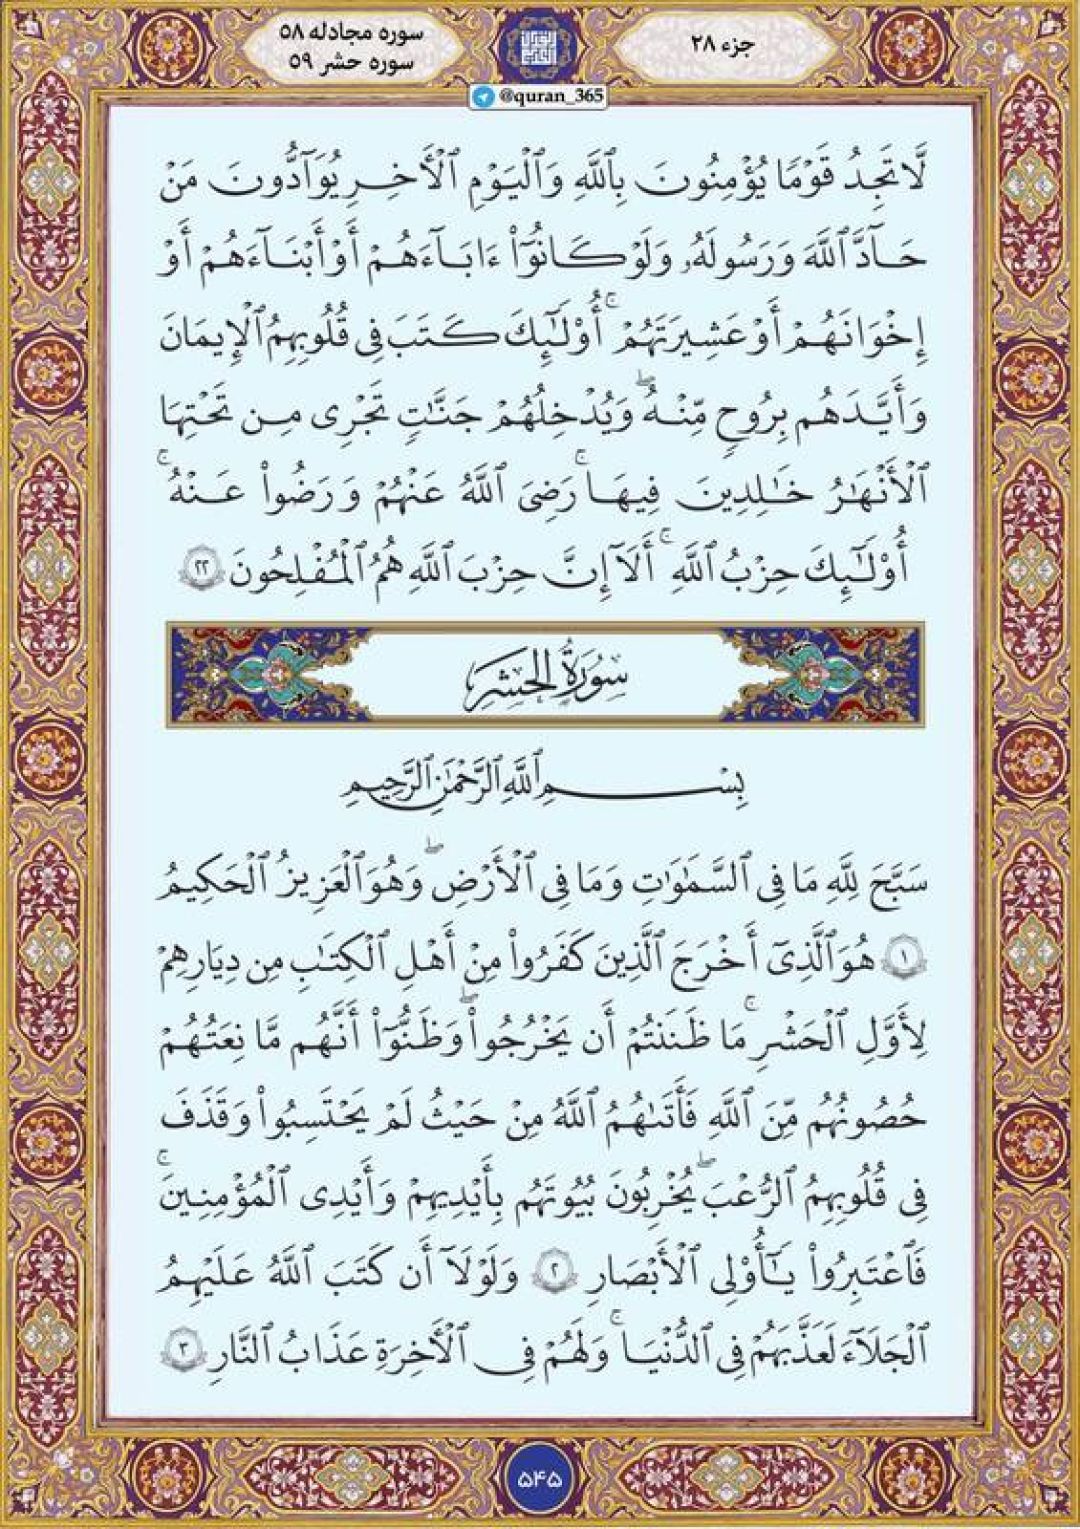 جزء ۲۸
سوره مجادله ۵۸
سوره حشر ۵۹
@quran_365
لَّا تَجِدُ قَوْمًا يُؤْمِنُونَ بِٱللَّهِ وَٱلْيَوْمِ ٱلْأَخِرِ يُوَآدُّونَ مَنْ
حَآدَّ ٱللَّهَ وَرَسُولَهُۥ وَلَوْ كَانُوٓا۟ ءَابَآءَهُمْ أَوْ أَبْنَآءَهُمْ أَوْ
إِخْوَانَهُمْ أَوْ عَشِيرَتَهُمْ ۚ أُو۟لَـٰٓئِكَ كَتَبَ فِى قُلُوبِهِمُ ٱلْإِيمَانَ
وَأَيَّدَهُم بِرُوحٍ مِّنْهُ ۖ وَيُدْخِلُهُمْ جَنَّـٰتٍ تَجْرِى مِن تَحْتِهَا
ٱلْأَنْهَـٰرُ خَـٰلِدِينَ فِيهَا ۚ رَضِىَ ٱللَّهُ عَنْهُمْ وَرَضُوا۟ عَنْهُ ۚ
أُو۟لَـٰٓئِكَ حِزْبُ ٱللَّهِ ۚ أَلَآ إِنَّ حِزْبَ ٱللَّهِ هُمُ ٱلْمُفْلِحُونَ ٢٢
سُورَةُ الحَشرِ
بِسْمِ ٱللَّهِ ٱلرَّحْمَـٰنِ ٱلرَّحِيمِ
سَبَّحَ لِلَّهِ مَا فِى ٱلسَّمَـٰوَٰتِ وَمَا فِى ٱلْأَرْضِ ۖ وَهُوَ ٱلْعَزِيزُ ٱلْحَكِيمُ
١ هُوَ ٱلَّذِىٓ أَخْرَجَ ٱلَّذِينَ كَفَرُوا۟ مِنْ أَهْلِ ٱلْكِتَـٰبِ مِن دِيَـٰرِهِمْ
لِأَوَّلِ ٱلْحَشْرِ ۚ مَا ظَنَنتُمْ أَن يَخْرُجُوا۟ ۖ وَظَنُّوٓا۟ أَنَّهُم مَّانِعَتُهُمْ
حُصُونُهُم مِّنَ ٱللَّهِ فَأَتَىٰهُمُ ٱللَّهُ مِنْ حَيْثُ لَمْ يَحْتَسِبُوا۟ وَقَذَفَ
فِى قُلُوبِهِمُ ٱلرُّعْبَ ۖ يُخْرِبُونَ بُيُوتَهُم بِأَيْدِيهِمْ وَأَيْدِى ٱلْمُؤْمِنِينَ ۚ
فَٱعْتَبِرُوا۟ يَـٰٓأُو۟لِى ٱلْأَبْصَـٰرِ ٢ وَلَوْلَآ أَن كَتَبَ ٱللَّهُ عَلَيْهِمُ
ٱلْجَلَآءَ لَعَذَّبَهُمْ فِى ٱلدُّنْيَا ۚ وَلَهُمْ فِى ٱلْأَخِرَةِ عَذَابُ ٱلنَّارِ ٣
۵۴۵